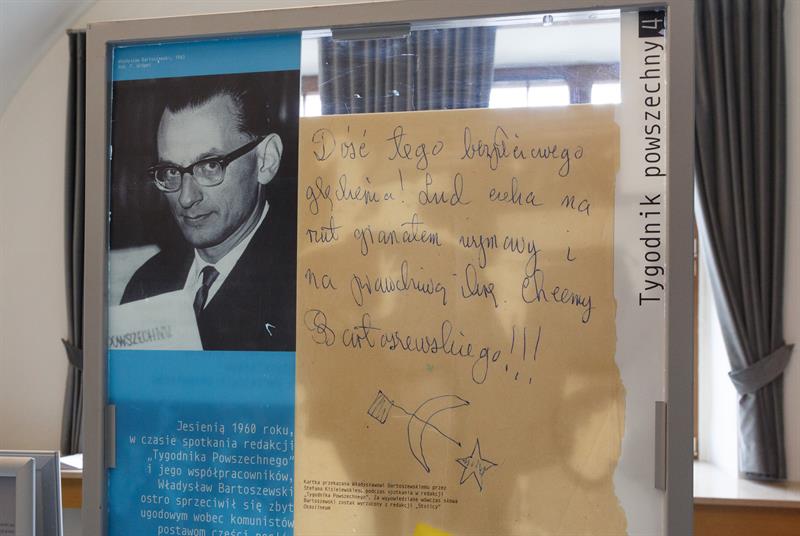 Władysław Bartoszewski, 1963
Fot.
POWSZECHNY
Jesienią 1960 roku,
w czasie spotkania redakcji
„Tygodnika Powszechnego”
i jego współpracowników,
Władysław Bartoszewski
ostro sprzeciwił się zbyt
ugodowym wobec komunistów
postawom części
Dość tego bezpłciowego
ględzenia! Lud czeka na
rzut granatem wymowy i
na prawdziwą ikrę. Chcemy
Bartoszewskiego!!!
Kartka przekazana Władysławowi Bartoszewskiemu przez
Stefana Kisielewskiego podczas spotkania w redakcji
„Tygodnika Powszechnego”. Za wypowiedziane wówczas słowa
Bartoszewski został wyrzucony z redakcji „Stolicy”
Ossolineum
Tygodnik powszechny 4